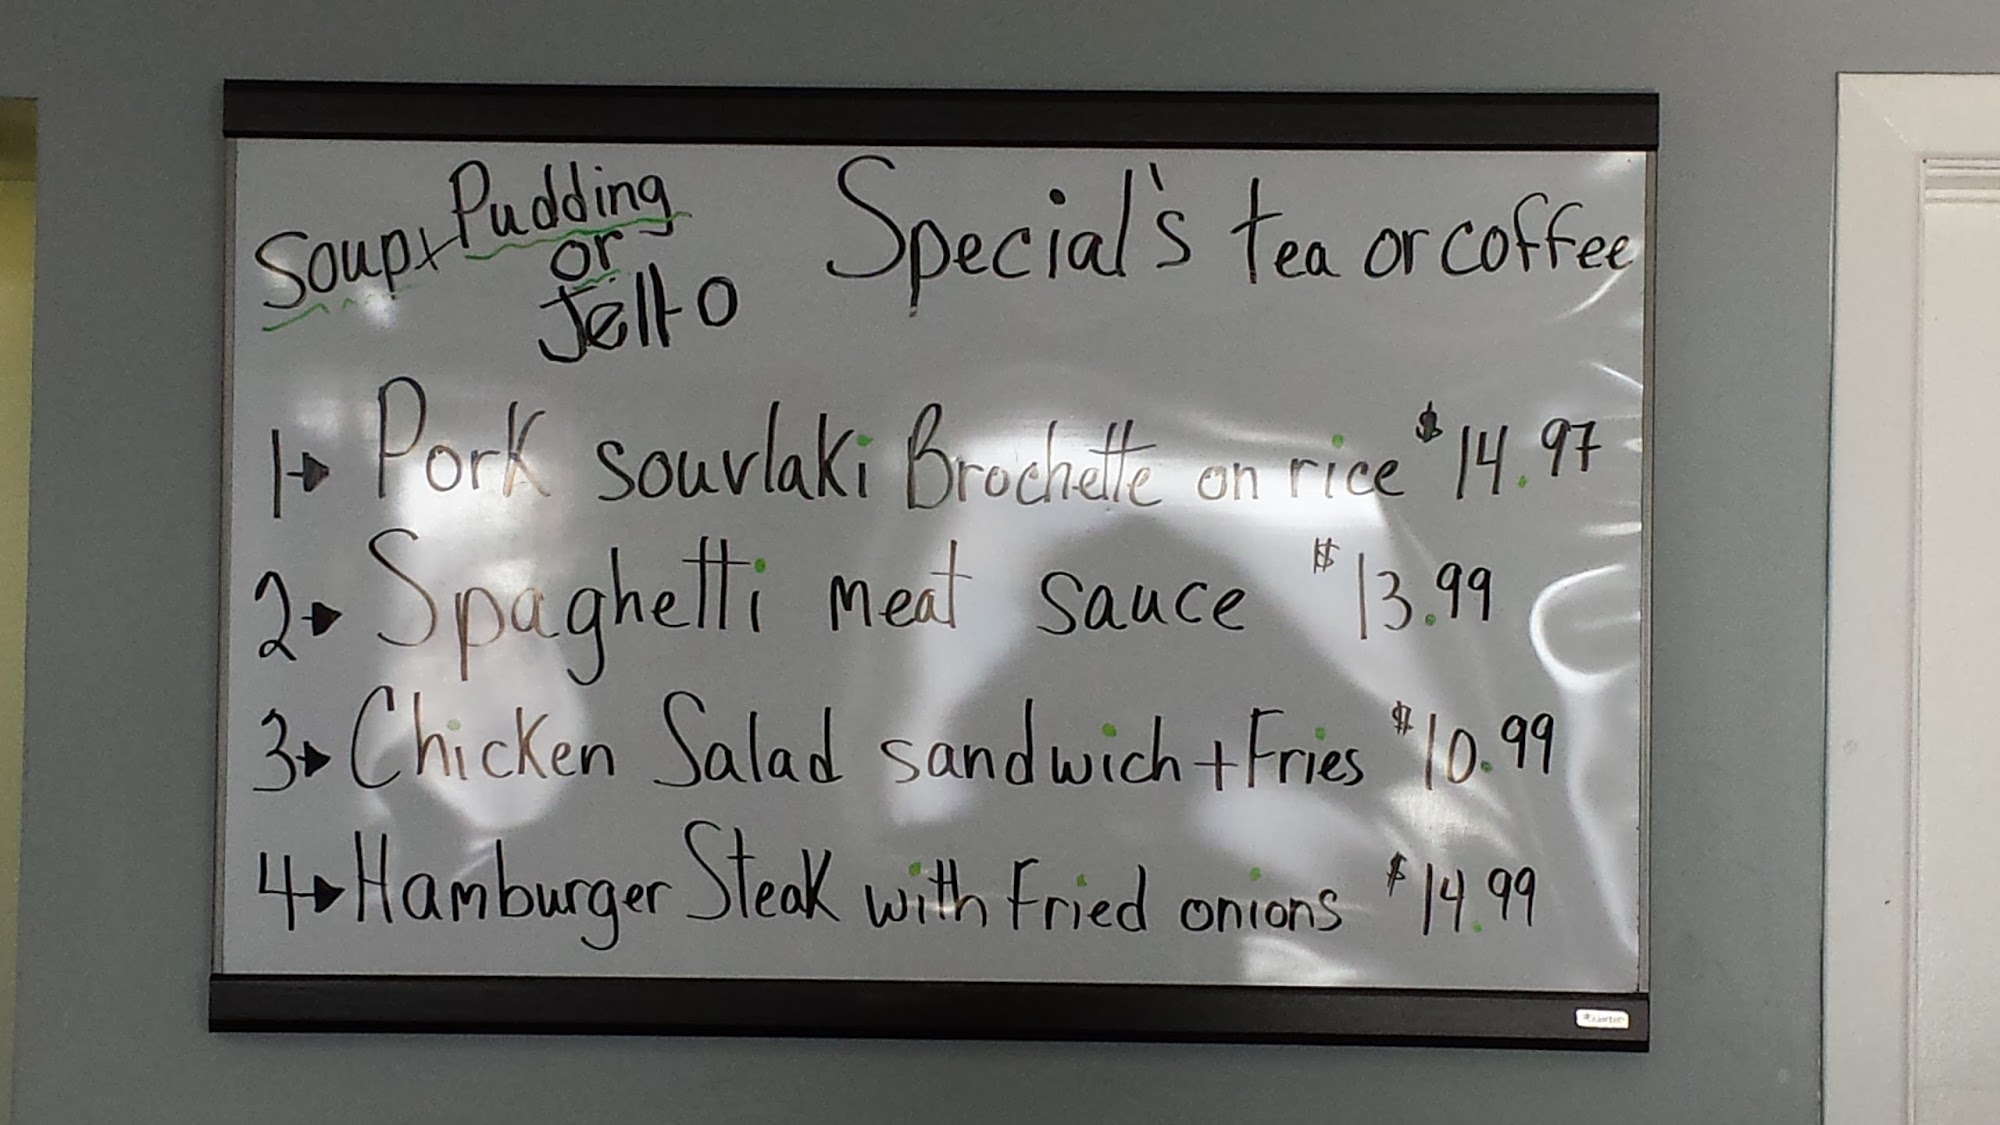 Soup + Pudding
or
Jell-O
Special's tea or coffee
1→ Pork souvlaki Brochette on rice $14.97
2→ Spaghetti meat sauce $13.99
3→ Chicken Salad sandwich + Fries $10.99
4→ Hamburger Steak with Fried onions $14.99
Quartet